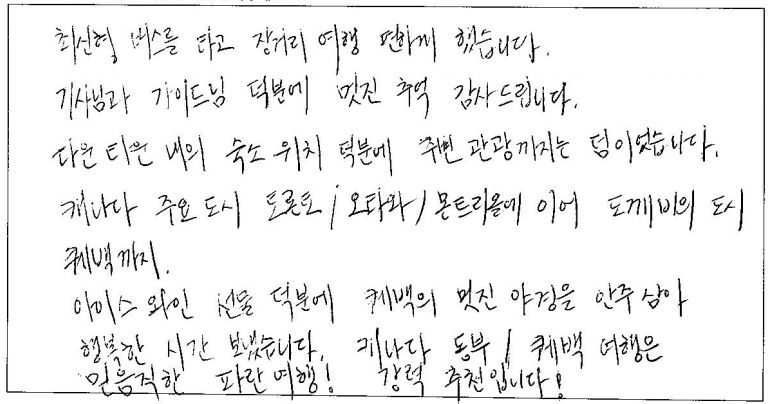 최신형 버스를 타고 장거리 여행 편하게 했습니다.
기사님과 가이드님 덕분에 멋진 추억 감사드립니다.
다운타운 내의 숙소 위치 덕분에 주변 관광까지는 덤이었습니다.
캐나다 주요 도시 토론토/오타와/몬트리올에 이어 도깨비의 도시
퀘백까지.
아이스와인 선물 덕분에 퀘백의 멋진 야경을 안주 삼아
행복한 시간 보냈습니다. 캐나다 동부/퀘백 여행은
믿음직한 파란여행! 강력 추천입니다!